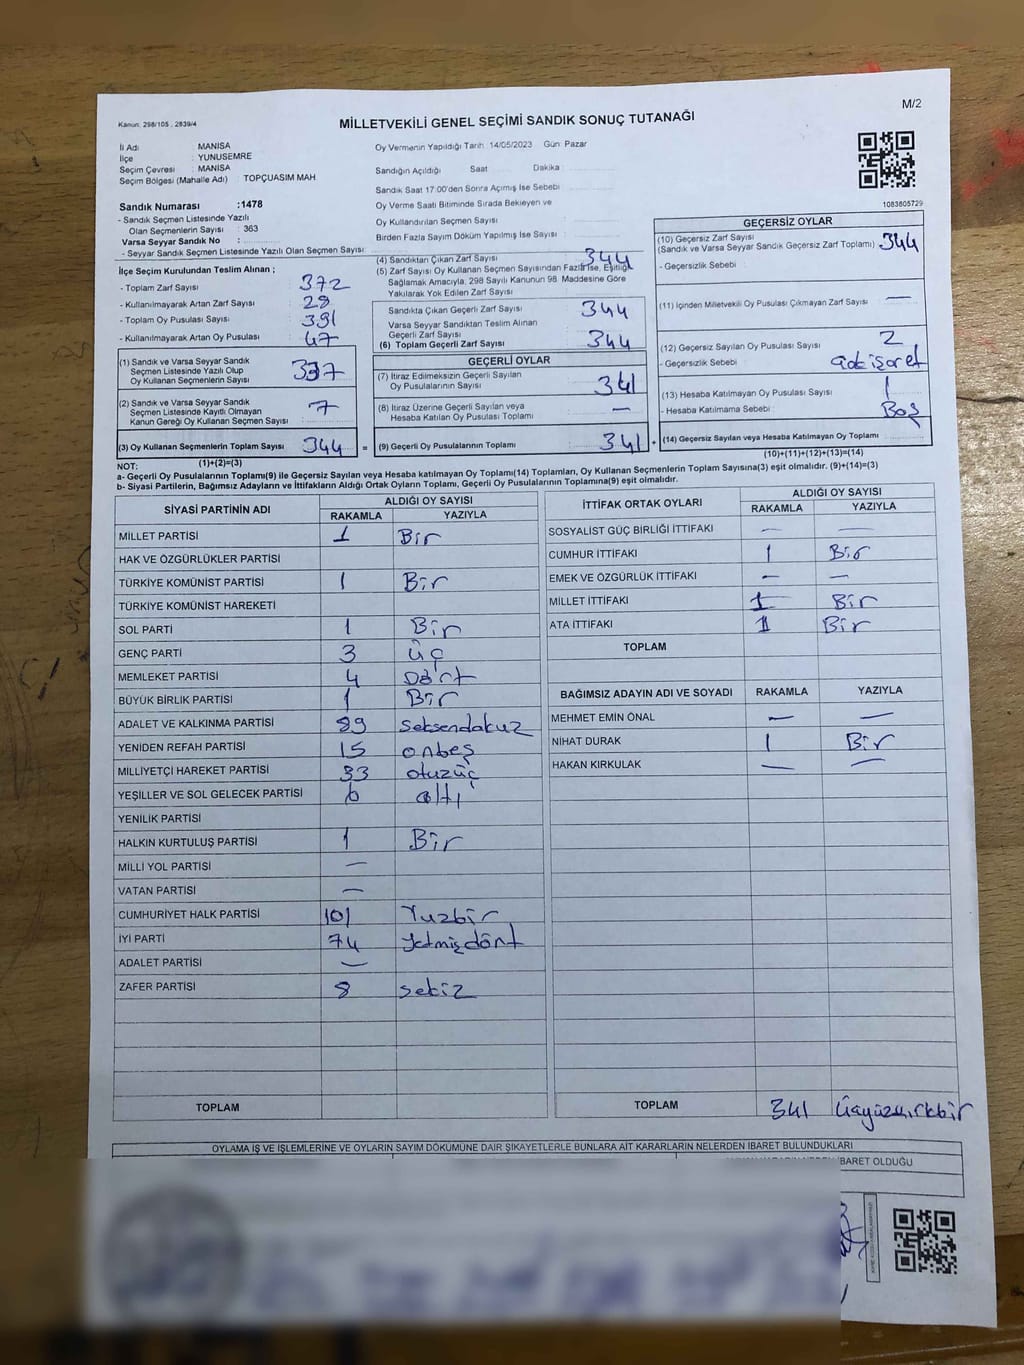 M/2
Kanun: 298/105 , 2839/4
MİLLETVEKİLİ GENEL SEÇİMİ SANDIK SONUÇ TUTANAĞI
İl Adı : MANİSA
İlçe : YUNUSEMRE
Seçim Çevresi : MANİSA
Seçim Bölgesi (Mahalle Adı) : TOPÇUASIM MAH.
Sandık Numarası :1478
- Sandık Seçmen Listesinde Yazılı
Olan Seçmenlerin Sayısı : 363
Varsa Seyyar Sandık No :
- Seyyar Sandık Seçmen Listesinde Yazılı Olan Seçmen Sayısı:
Oy Vermenin Yapıldığı Tarih: 14/05/2023 Gün: Pazar
Sandığın Açıldığı Saat Dakika :
Sandık Saat 17.00'den Sonra Açılmış İse Sebebi :
Oy Verme Saati Bitiminde Sırada Bekleyen ve
Oy Kullandırılan Seçmen Sayısı :
Birden Fazla Sayım Döküm Yapılmış İse Sayısı :
1083805729
İlçe Seçim Kurulundan Teslim Alınan ;
- Toplam Zarf Sayısı : 372
- Kullanılmayarak Artan Zarf Sayısı : 28
- Toplam Oy Pusulası Sayısı : 391
- Kullanılmayarak Artan Oy Pusulası : 47
(1) Sandık ve Varsa Seyyar Sandık
Seçmen Listesinde Yazılı Olup
Oy Kullanan Seçmenlerin Sayısı : 337
(2) Sandık ve Varsa Seyyar Sandık
Seçmen Listesinde Kayıtlı Olmayan
Kanun Gereği Oy Kullanan Seçmen Sayısı : 7
(3) Oy Kullanan Seçmenlerin Toplam Sayısı : 344 =
(1)+(2)=(3)
(4) Sandıktan Çıkan Zarf Sayısı : 344
(5) Zarf Sayısı Oy Kullanan Seçmen Sayısından Fazla İse, Eşitliği
Sağlamak Amacıyla, 298 Sayılı Kanunun 98. Maddesine Göre
Yakılarak Yok Edilen Zarf Sayısı :
Sandıkta Çıkan Geçerli Zarf Sayısı : 344
Varsa Seyyar Sandıktan Teslim Alınan
Geçerli Zarf Sayısı :
(6) Toplam Geçerli Zarf Sayısı : 344
GEÇERLİ OYLAR
(7) İtiraz Edilmeksizin Geçerli Sayılan
Oy Pusulalarının Sayısı : 341
(8) İtiraz Üzerine Geçerli Sayılan veya
Hesaba Katılan Oy Pusulası Toplamı : —
(9) Geçerli Oy Pusulalarının Toplamı : 341 +
GEÇERSİZ OYLAR
(10) Geçersiz Zarf Sayısı
(Sandık ve Varsa Seyyar Sandık Geçersiz Zarf Toplamı) : 344
- Geçersizlik Sebebi :
(11) İçinden Milletvekili Oy Pusulası Çıkmayan Zarf Sayısı : —
(12) Geçersiz Sayılan Oy Pusulası Sayısı : 2
- Geçersizlik Sebebi :
(13) Hesaba Katılmayan Oy Pusulası Sayısı : 1
- Hesaba Katılmama Sebebi : Boş
(14) Geçersiz Sayılan veya Hesaba Katılmayan Oy Toplamı :
(10)+(11)+(12)+(13)=(14)
NOT:
a- Geçerli Oy Pusulalarının Toplamı(9) ile Geçersiz Sayılan veya Hesaba katılmayan Oy Toplamı(14) Toplamları, Oy Kullanan Seçmenlerin Toplam Sayısına(3) eşit olmalıdır. (9)+(14)=(3)
b- Siyasi Partilerin, Bağımsız Adayların ve İttifakların Aldığı Ortak Oyların Toplamı, Geçerli Oy Pusulalarının Toplamına(9) eşit olmalıdır.
SİYASİ PARTİNİN ADI ALDIĞI OY SAYISI
RAKAMLA YAZIYLA
MİLLET PARTİSİ 1 Bir
HAK VE ÖZGÜRLÜKLER PARTİSİ
TÜRKİYE KOMÜNİST PARTİSİ 1 Bir
TÜRKİYE KOMÜNİST HAREKETİ
SOL PARTİ 1 Bir
GENÇ PARTİ 3 üç
MEMLEKET PARTİSİ 4 Dört
BÜYÜK BİRLİK PARTİSİ 1 Bir
ADALET VE KALKINMA PARTİSİ 89 seksendokuz
YENİDEN REFAH PARTİSİ 15 onbeş
MİLLİYETÇİ HAREKET PARTİSİ 33 otuzüç
YEŞİLLER VE SOL GELECEK PARTİSİ 6 altı
YENİLİK PARTİSİ
HALKIN KURTULUŞ PARTİSİ 1 Bir
MİLLİ YOL PARTİSİ —
VATAN PARTİSİ —
CUMHURİYET HALK PARTİSİ 101 Yuzbir
İYİ PARTİ 74 Yetmişdört
ADALET PARTİSİ —
ZAFER PARTİSİ 8 sekiz
TOPLAM
İTTİFAK ORTAK OYLARI ALDIĞI OY SAYISI
RAKAMLA YAZIYLA
SOSYALİST GÜÇ BİRLİĞİ İTTİFAKI — —
CUMHUR İTTİFAKI 1 Bir
EMEK VE ÖZGÜRLÜK İTTİFAKI — —
MİLLET İTTİFAKI 1 Bir
ATA İTTİFAKI 1 Bir
TOPLAM
BAĞIMSIZ ADAYIN ADI VE SOYADI RAKAMLA YAZIYLA
MEHMET EMİN ÖNAL — —
NİHAT DURAK 1 Bir
HAKAN KIRKULAK — —
TOPLAM 341 Üçyüzkırkbir
OYLAMA İŞ VE İŞLEMLERİNE VE OYLARIN SAYIM DÖKÜMÜNE DAİR ŞİKAYETLERLE BUNLARA AİT KARARLARIN NELERDEN İBARET BULUNDUKLARI
İBARET OLDUĞU